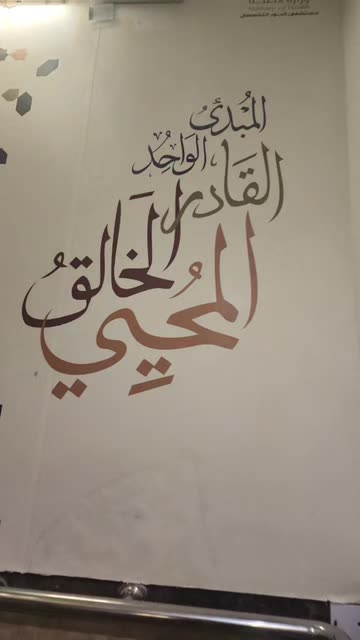 وزارة الصحة
Ministry of Health
المُبْدِئُ
الوَاحِدُ
القَادِرُ
الخَالِقُ
المُحْيِي